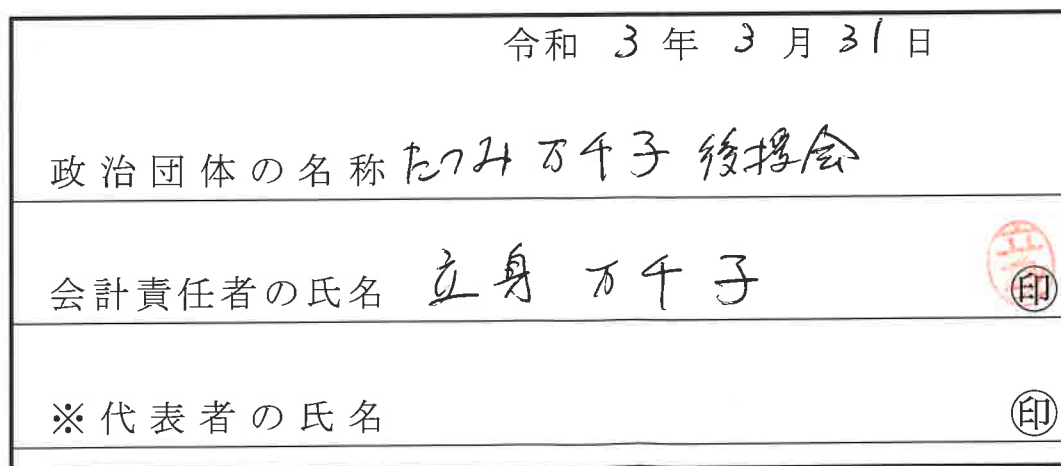 令和 3 年 3 月 31 日
政治団体の名称 たつみ 万千子 後援会
会計責任者の氏名 立身 万千子 ㊞
※代表者の氏名 ㊞